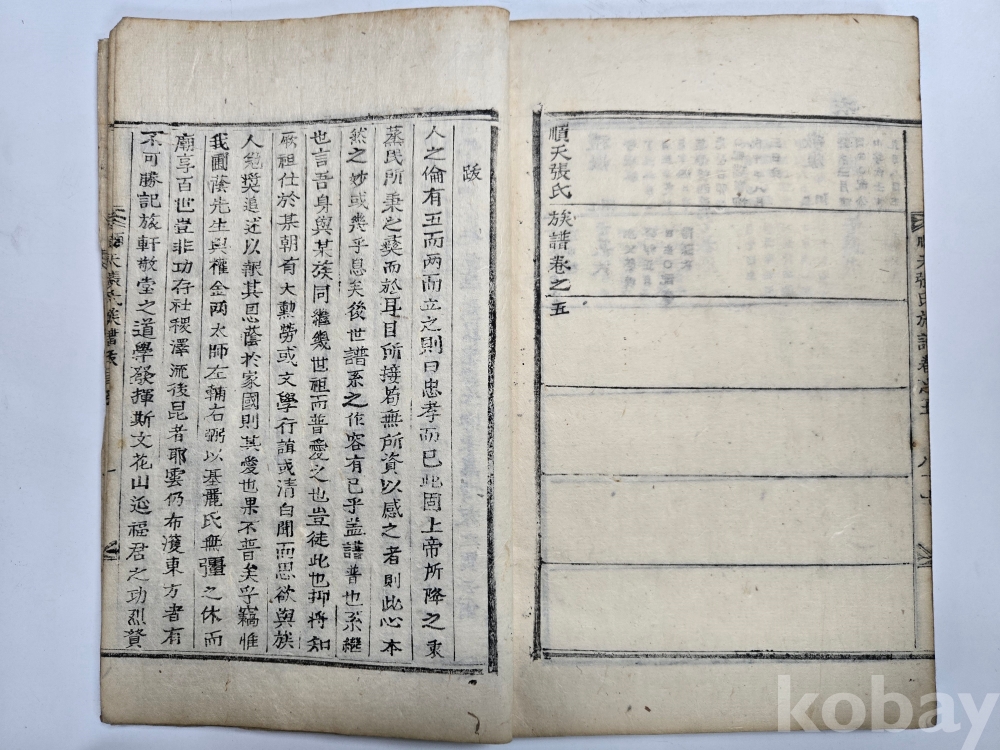 順天張氏 族譜卷之五
跋
人之倫有五而两而立之則曰忠孝而已此固上帝所降之衷
蒸民所秉之彛而於耳目所接苟無所資以感之者則此心本
然之妙或幾乎息矣後世譜系之作容有已乎盖譜普也系継
也言吾身與某族同継幾世祖而普愛之也豈徒此也抑将知
厥祖仕於某朝有大勳勞或文學行誼或清白聞而思欲與族
人勉奬追述以報其恩蔭於家國則其愛也果不普矣乎竊惟
我圃蔭先生與權金两太師左輔右弼以基麗氏無彊之休而
廟享百世豈非功存社稷澤流後昆者耶雲仍布濩東方者有
不可勝記旅軒敬堂之道學發揮斯文花山延福君之功烈賛
順天張氏族譜卷之五
順天張氏族譜跋
一
kobay